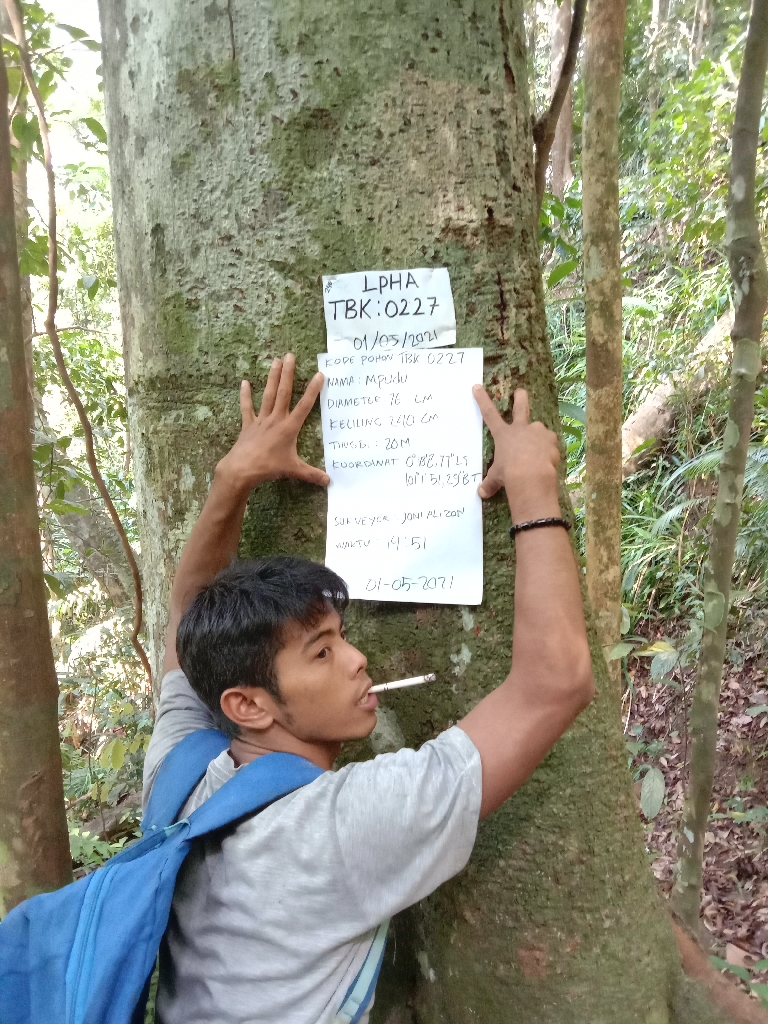 LPHA
TBK:0227
01/05/2021
KODE POHON TBK 0227
NAMA : 
DIAMETER 76 CM
KELILING 240 CM
TINGGI : 20M
KOORDINAT
SURVEYER JONI ALIZON
WAKTU 14:51
01-05-2021